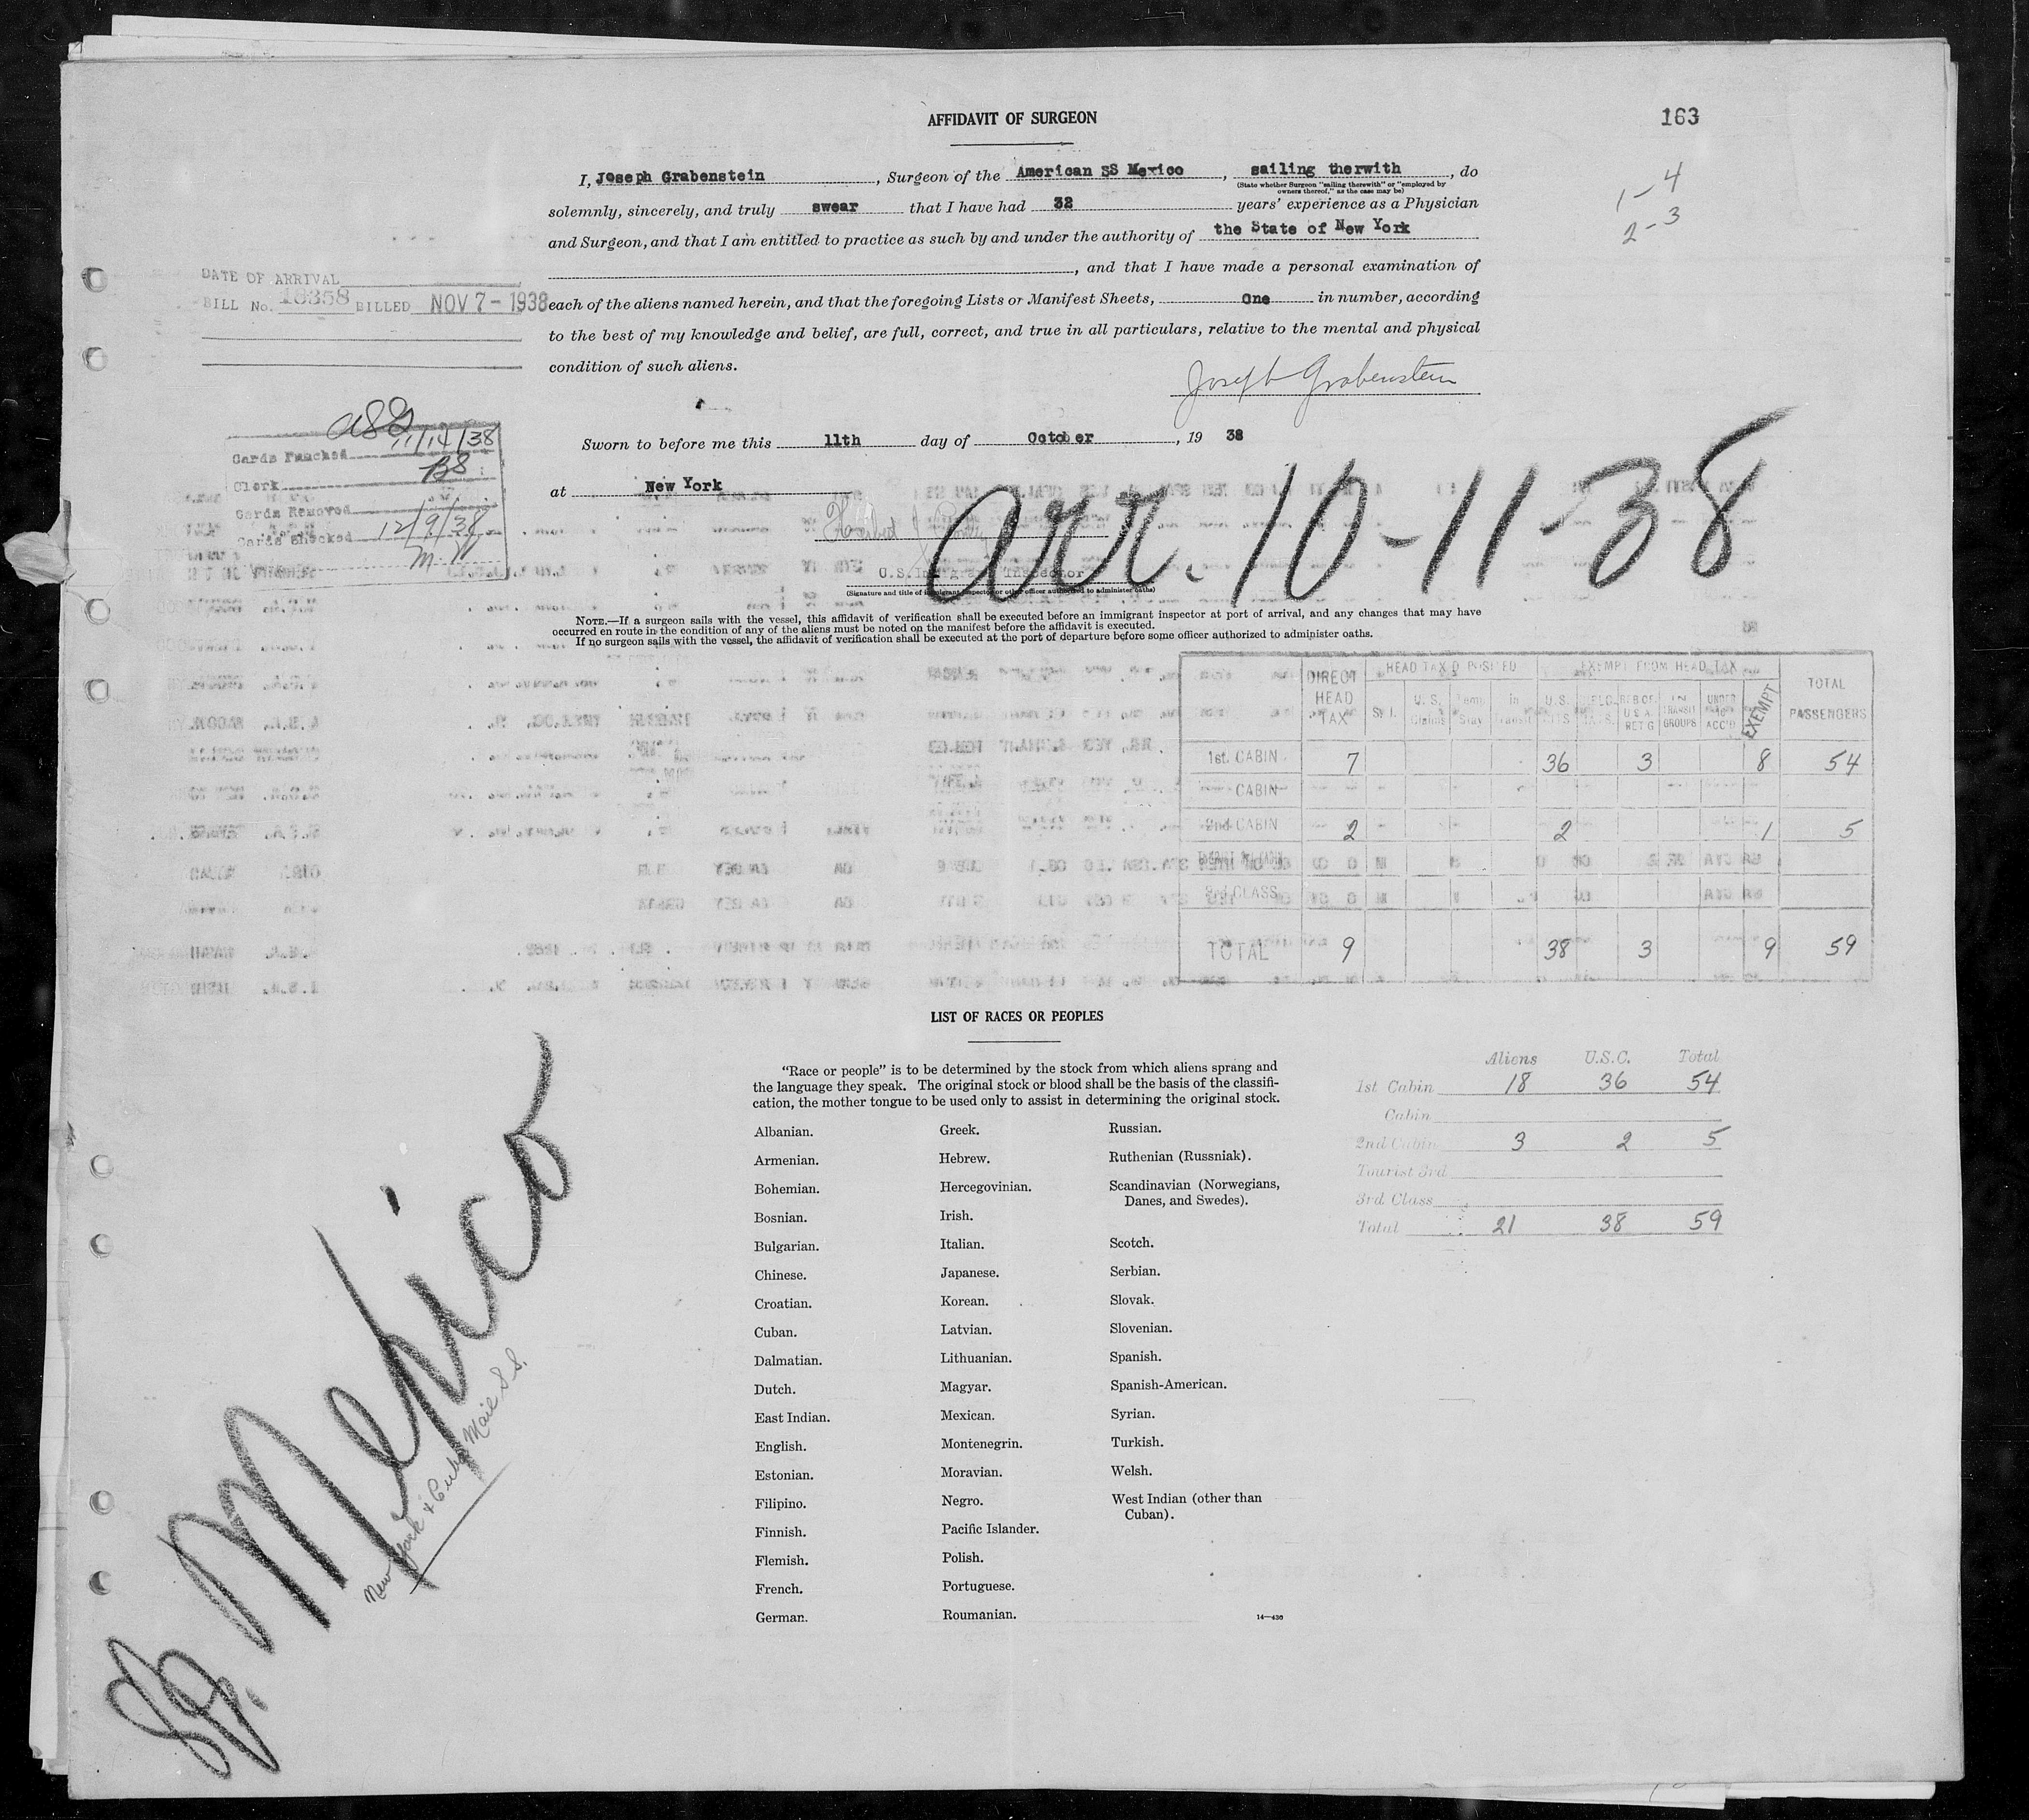 AFFIDAVIT OF SURGEON
163
1-4
2-3
I, Joseph Grabenstein, Surgeon of the American SS Mexico, sailing therwith, do
(State whether Surgeon "sailing therewith" or "employed by
owners thereof," as the case may be)
solemnly, sincerely, and truly swear that I have had 32 years' experience as a Physician
and Surgeon, and that I am entitled to practice as such by and under the authority of the State of New York
, and that I have made a personal examination of
each of the aliens named herein, and that the foregoing Lists or Manifest Sheets, One in number, according
to the best of my knowledge and belief, are full, correct, and true in all particulars, relative to the mental and physical
condition of such aliens.
Joseph Grabenstein
DATE OF ARRIVAL
BILL No. 16358 BILLED NOV 7 - 1938
11/14/38
Cards Punched
Clerk BS
Cards Removed
Cards Checked 12/9/38
M.W.
Sworn to before me this 11th day of October, 19 38
at New York
arr. 10-11-38
U.S. Inspector
(Signature and title of immigrant inspector or other officer authorized to administer oaths)
NOTE.—If a surgeon sails with the vessel, this affidavit of verification shall be executed before an immigrant inspector at port of arrival, and any changes that may have
occurred en route in the condition of any of the aliens must be noted on the manifest before the affidavit is executed.
If no surgeon sails with the vessel, the affidavit of verification shall be executed at the port of departure before some officer authorized to administer oaths.
DIRECT HEAD TAX HEAD TAX DEPOSITED EXEMPT FROM HEAD TAX TOTAL PASSENGERS
U.S. Claims Temp Stay in Transit U.S. CITS. REB OF U S A RET'G IN TRANSIT GROUPS UNDER 16 ACC'D EXEMPT
1st. CABIN 7 36 3 8 54
CABIN
2nd CABIN 2 2 1 5
3rd CLASS
TOTAL 9 38 3 9 59
LIST OF RACES OR PEOPLES
"Race or people" is to be determined by the stock from which aliens sprang and
the language they speak. The original stock or blood shall be the basis of the classifi-
cation, the mother tongue to be used only to assist in determining the original stock.
Albanian.
Armenian.
Bohemian.
Bosnian.
Bulgarian.
Chinese.
Croatian.
Cuban.
Dalmatian.
Dutch.
East Indian.
English.
Estonian.
Filipino.
Finnish.
Flemish.
French.
German.
Greek.
Hebrew.
Hercegovinian.
Irish.
Italian.
Japanese.
Korean.
Latvian.
Lithuanian.
Magyar.
Mexican.
Montenegrin.
Moravian.
Negro.
Pacific Islander.
Polish.
Portuguese.
Roumanian.
Russian.
Ruthenian (Russniak).
Scandinavian (Norwegians,
Danes, and Swedes).
Scotch.
Serbian.
Slovak.
Slovenian.
Spanish.
Spanish-American.
Syrian.
Turkish.
Welsh.
West Indian (other than
Cuban).
14—430
Aliens U.S.C. Total
1st Cabin 18 36 54
Cabin
2nd Cabin 3 2 5
Tourist 3rd
3rd Class
Total 21 38 59
SS. Mexico
New York & Cuba Mail S.S.